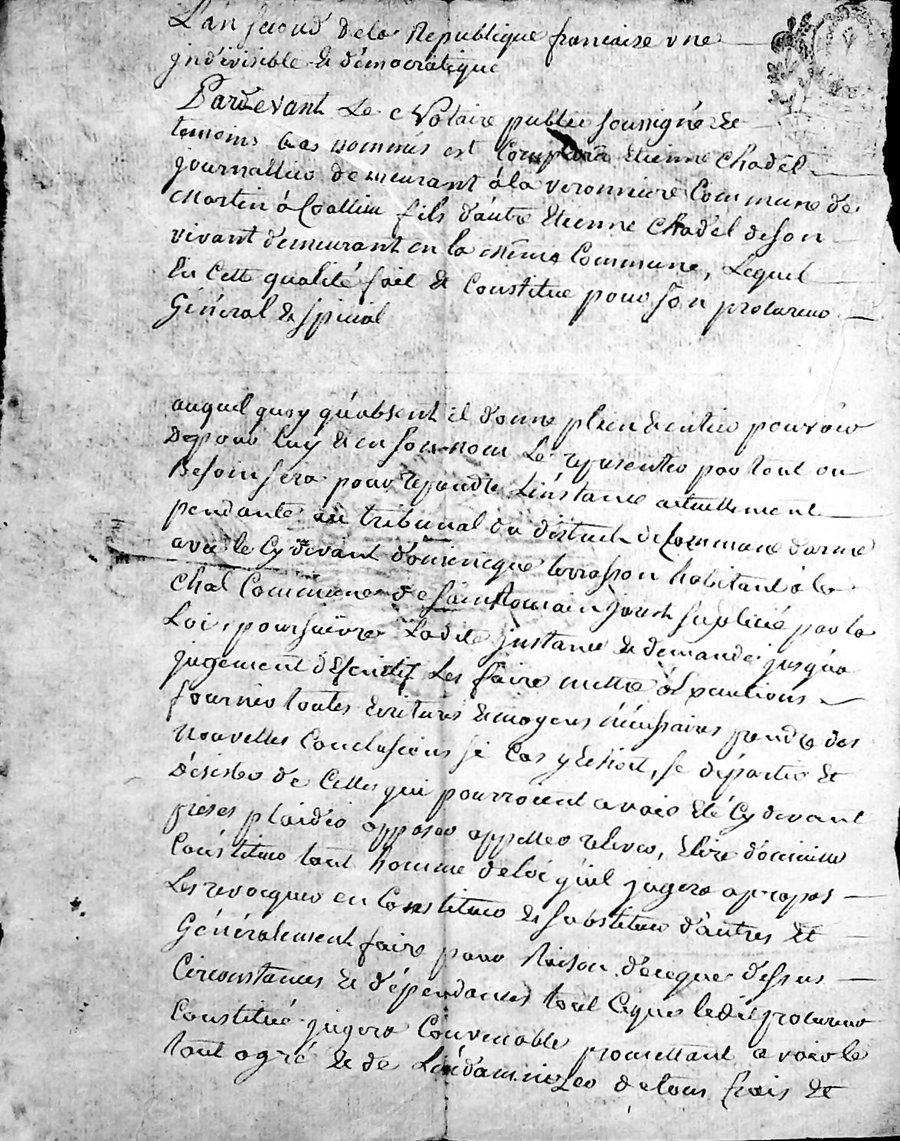 L'an second dela Republique francaise une
indivisible & démocratique
Pardevant Le Notaire public soussigné &
temoins bas nommés est Comparu Etienne Chadel
journallier demeurant àla veronniere Commune de
Martin à Coallieu fils d'autre Etienne Chadel deson
vivant demeurant en la même Commune, Lequel
En Cette qualité fait & Constitue pour son procureur
Général & spécial
auquel quoy qu'absent il donne plein & entier pouvoir
De pour luy & en son nom Le representer par tout ou
Besoin sera pour reprendre Linstance actuellement
pendante au tribunal du district de Commune d'arme
avec le Cy devant domineque terrasson habitant àla
Chal Commune de Saint Romain supplicié par la
Loi, poursuivre Ladite instance & demande jusqu'a
jugement déffinitif Les faire mettre à Exécutions
fournir toutes Ecritures & moyens nécessaires prendre des
nouvelles Conclusions si Cas y Echoit, se départir Et
Désister de Celles qui pourroient avoir Eté Cy devant
prises plaider opposer appeller relever, Elire domicille
Constituer tout homme deloi quil jugera apropos
Les revocquer en Constituer & substituer d'autres Et
Généralement faire pour Raison dece que dessus
Circonstances & dépendances tout Ceque ledit procureur
Constitué jugera Convenable promettant avoir le
tout agré & de Lindamniser detous frais Et